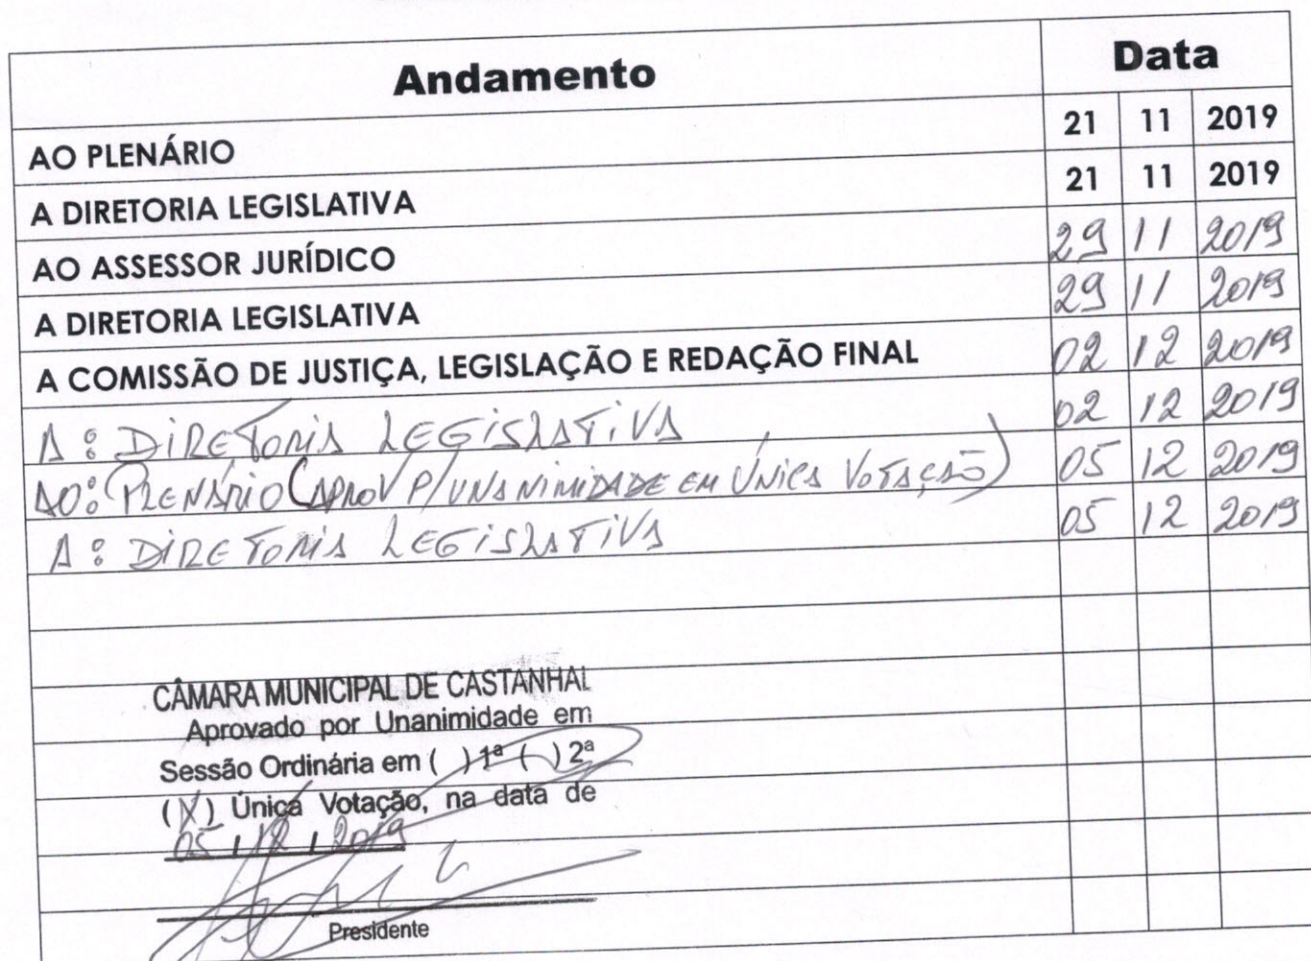 Andamento Data
AO PLENÁRIO 21 11 2019
A DIRETORIA LEGISLATIVA 21 11 2019
AO ASSESSOR JURÍDICO 29 11 2019
A DIRETORIA LEGISLATIVA 29 11 2019
A COMISSÃO DE JUSTIÇA, LEGISLAÇÃO E REDAÇÃO FINAL 02 12 2019
A: DIRETORIA LEGISLATIVA 02 12 2019
AO: PLENÁRIO (APROV P/UNANIMIDADE EM ÚNICA VOTAÇÃO) 05 12 2019
A: DIRETORIA LEGISLATIVA 05 12 2019
CÂMARA MUNICIPAL DE CASTANHAL
Aprovado por Unanimidade em
Sessão Ordinária em ( ) 1ª ( ) 2ª
(X) Única Votação, na data de
05 / 12 / 2019
Presidente